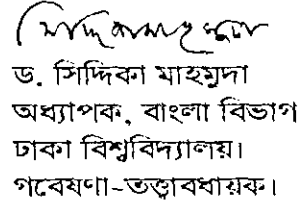 সিদ্দিকা মাহমুদা
ড. সিদ্দিকা মাহমুদা
অধ্যাপক, বাংলা বিভাগ
ঢাকা বিশ্ববিদ্যালয়।
গবেষণা-তত্ত্বাবধায়ক।